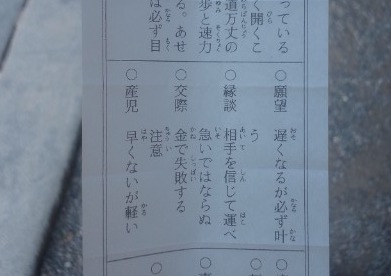 っている
く開くこ
道万丈の
歩と速力
る。あせ
は必ず目
○願望 遅くなるが必ず叶
う
○縁談 相手を信じて運べ
急いではならぬ
○交際 金で失敗する
注意
○産児 早くないが軽い